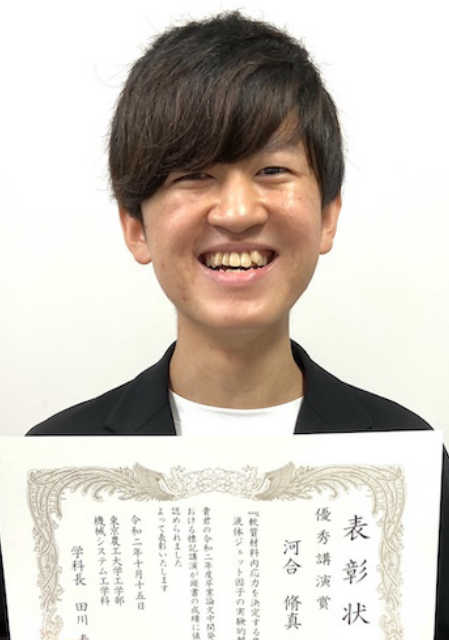 表彰状
優秀講演賞
河合 脩真
『軟質材料内応力を決定する
流体ジェット因子の実験的
貴君の令和二年度卒業論文中間発
おける標記講演が極書の成績に値
認められました
よって表彰いたします
令和二年十月十五日
東京農工大学工学部
機械システム工学科
学科長 田川